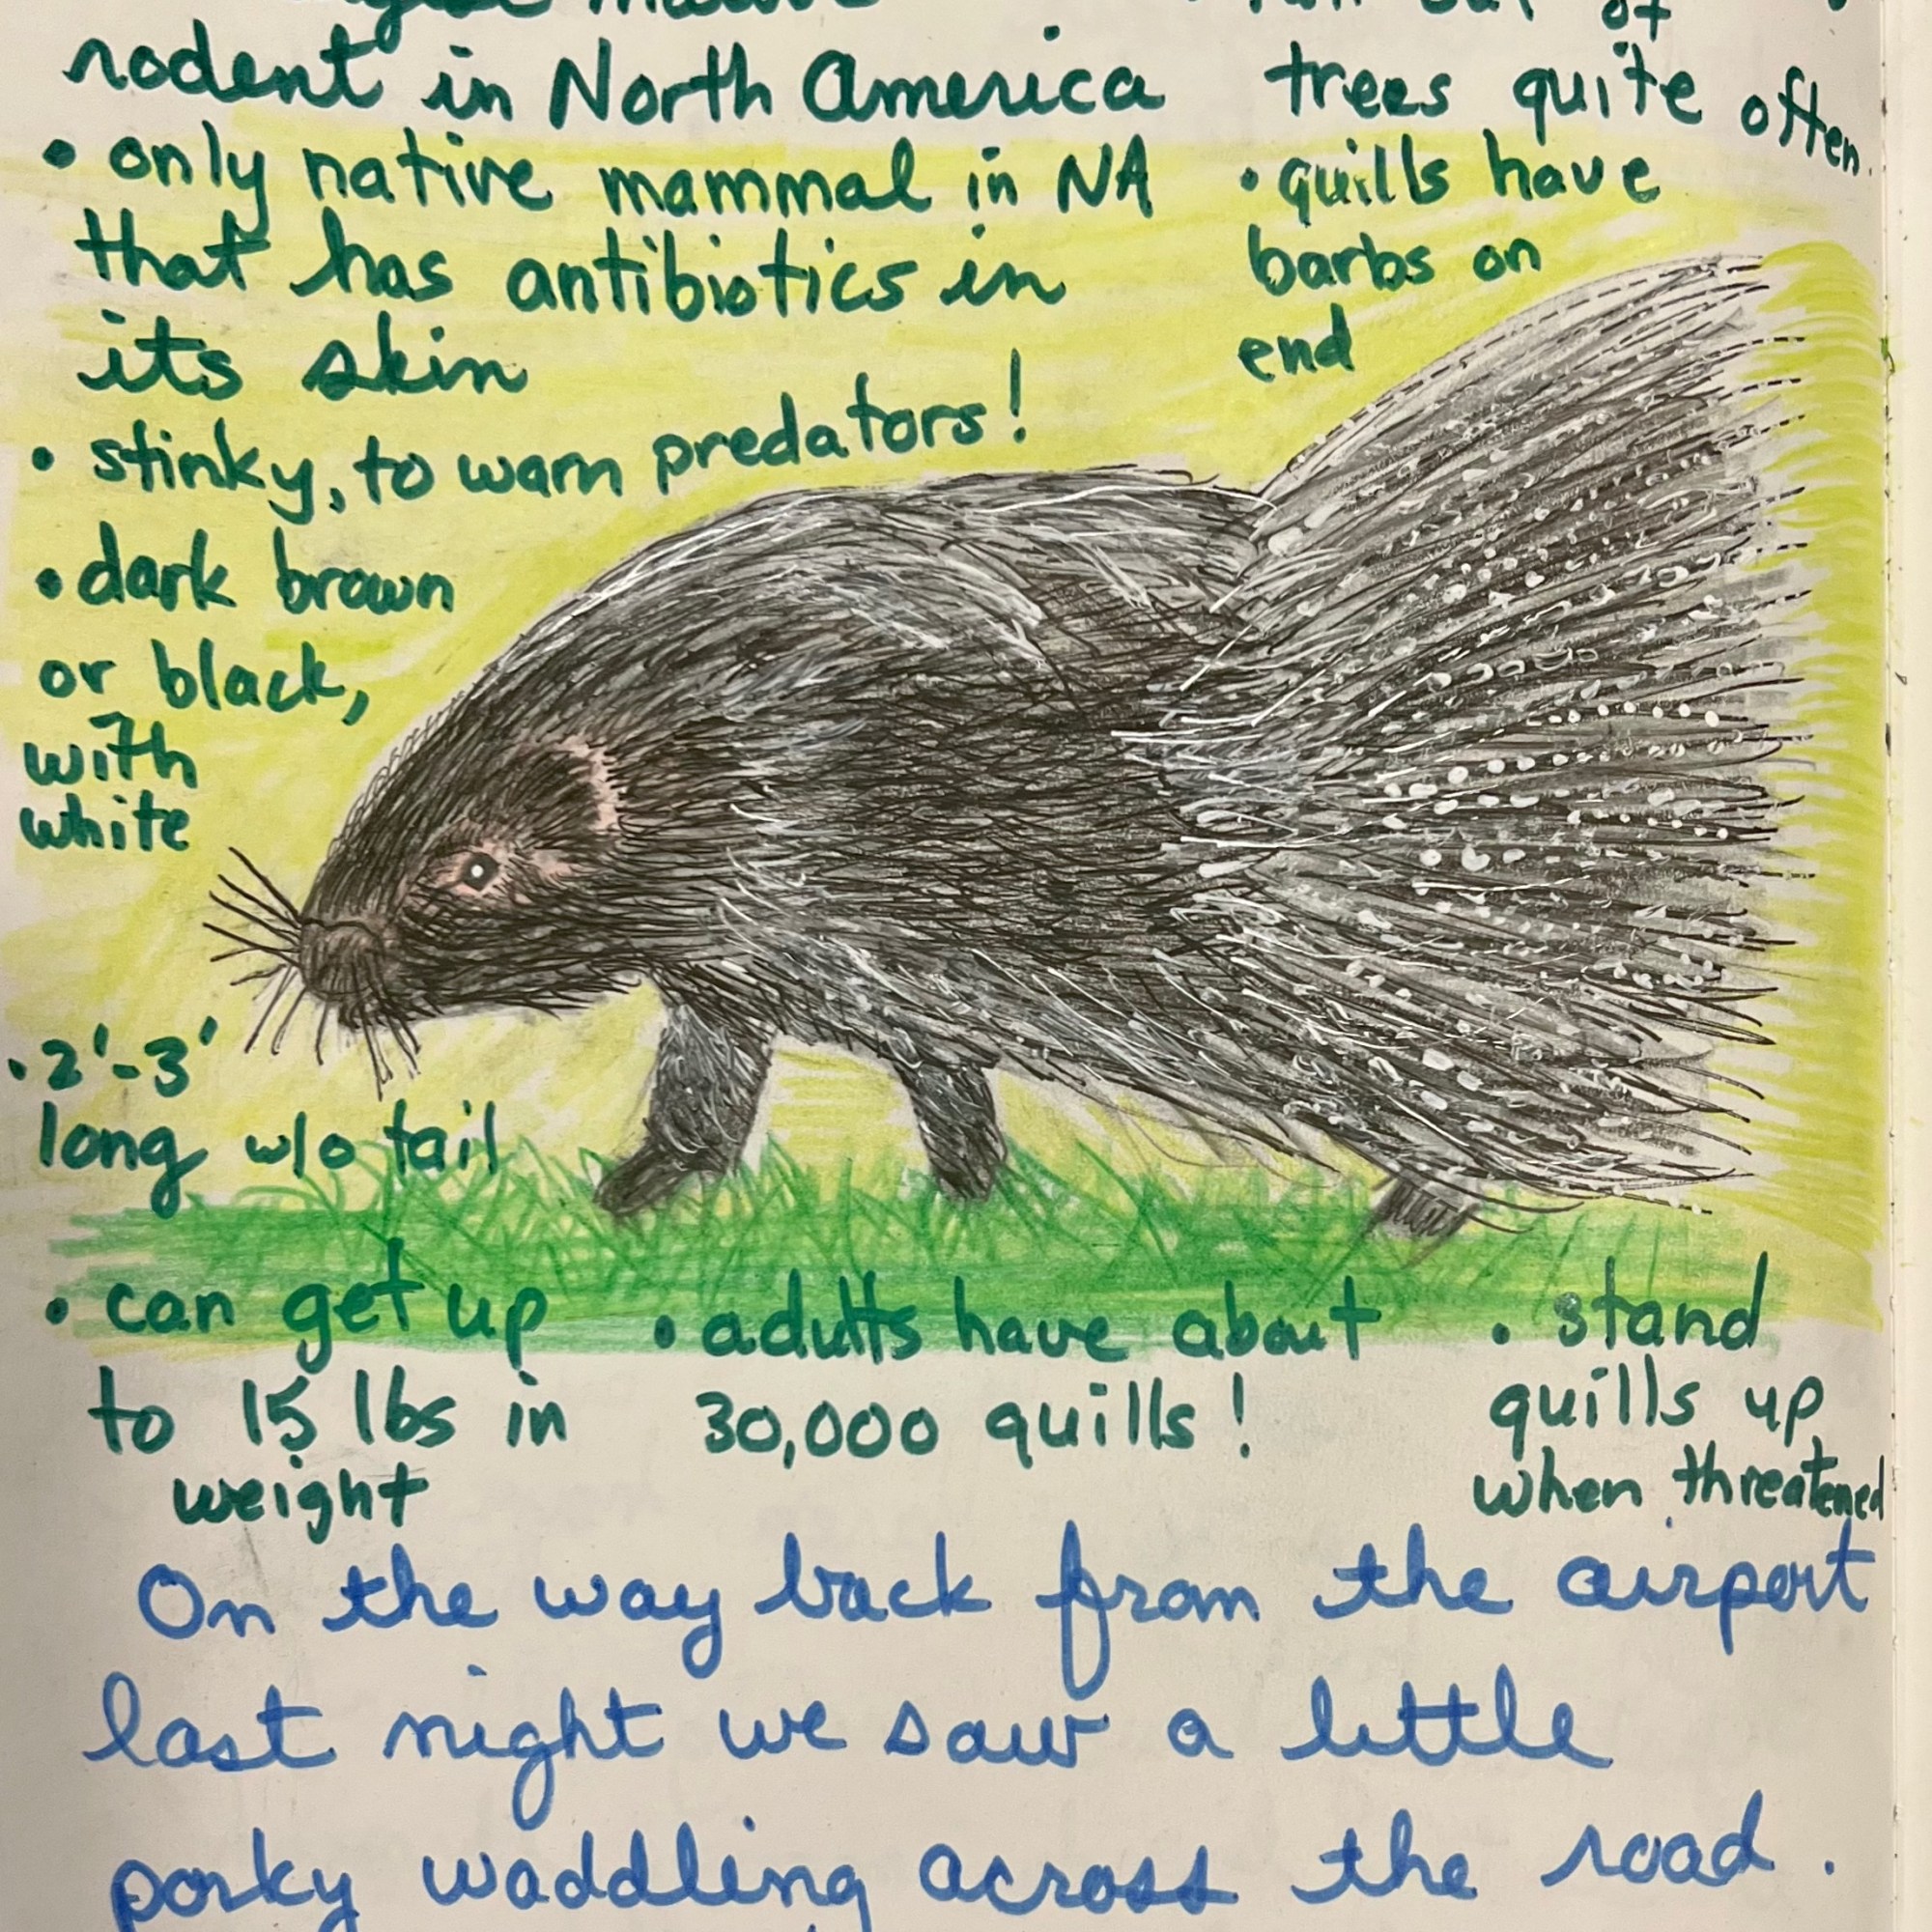 rodent in North America
• only native mammal in NA
that has antibiotics in
its skin
• stinky, to warn predators!
• dark brown
or black,
with
white
• 2'-3'
long w/o tail
of
trees quite often.
• quills have
barbs on
end
• can get up
to 15 lbs in
weight
• adults have about
30,000 quills!
• stand
quills up
when threatened
On the way back from the airport
last night we saw a little
porky waddling across the road.